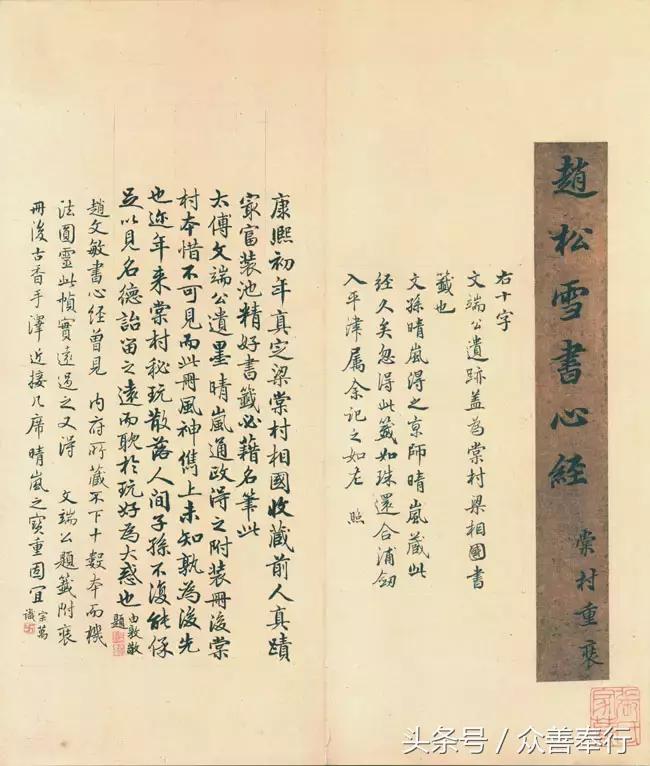 趙松雪書心經
棠村重裝
右十字
文端公遺跡蓋為棠村梁相國書
籤也
文孫晴嵐得之京師晴嵐藏此
經久矣忽得此籤如珠還合浦劒
入平津屬余記之如左 照
康熙初年真定梁棠村相國收藏前人真蹟
宷富装池精好書籤必藉名筆此
太傅文端公遺墨晴嵐通政得之附装冊後棠
村本惜不可見而此冊風神雋上未知孰為後先
也近年来棠村秘玩散落人間子孫不復能保
足以見名德詒留之遠而耽於玩好為大惑也
由敦敬
題
趙文敏書心經曾見 内府所藏不下十數本而機
法圓靈此幀實遠過之又得 文端公題籤附裝
冊後古香手澤近接几席晴嵐之寶重固宜
宗萬
識
头条号 / 众善奉行